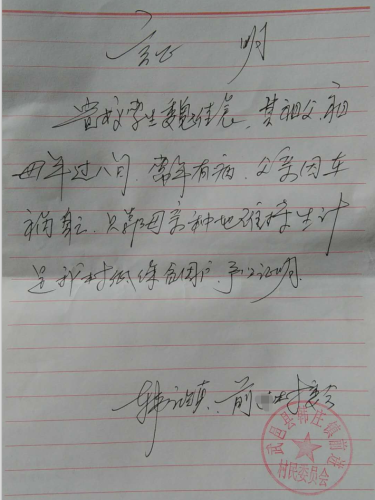 证 明
贵校学生魏佳晨，其祖父、祖
母年过八旬，常年有病，父亲因车
祸身亡，只靠母亲种地维持生计
是我村低保贫困户，予以证明。
韩庄镇 前 村委会
武邑县韩庄镇前
村民委员会